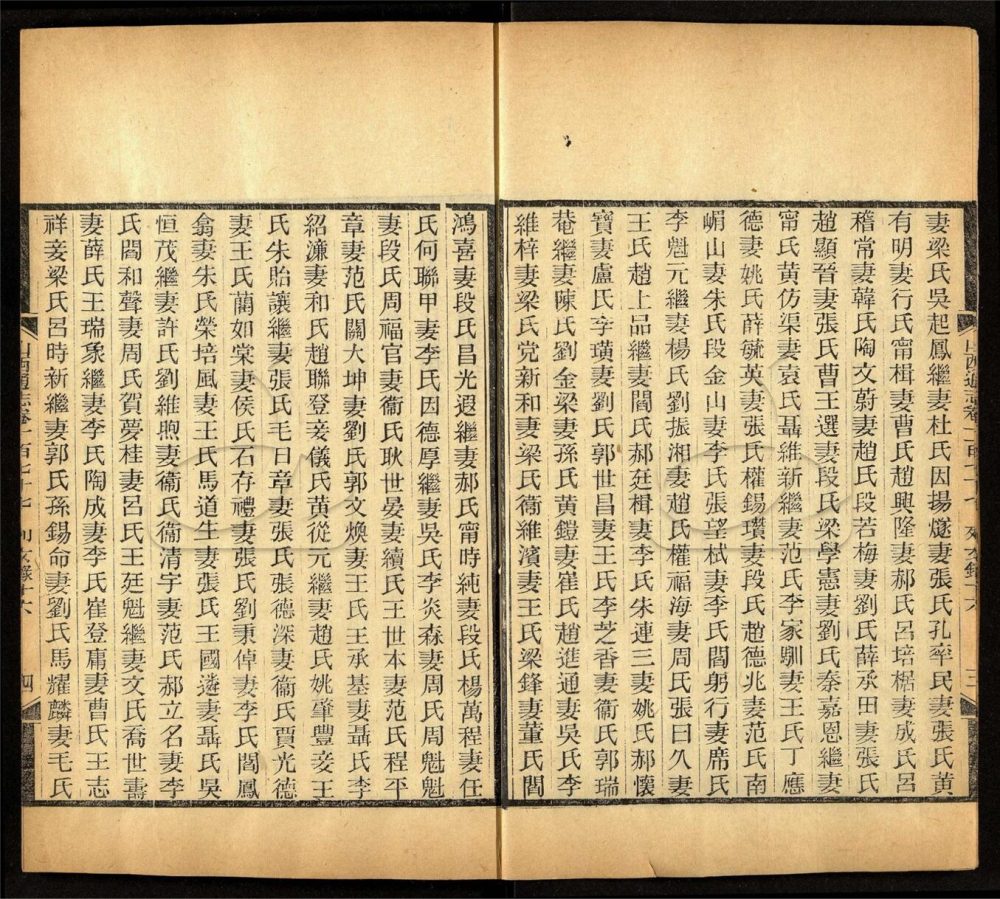 妻梁氏吳起鳳繼妻杜氏因揚燧妻張氏孔率民妻張氏黃
有明妻行氏甯楫妻曹氏趙興隆妻郝氏呂培椐妻成氏呂
稽常妻韓氏陶文蔚妻趙氏段若梅妻劉氏薛承田妻張氏
趙顯晉妻張氏曹王選妻段氏梁學憲妻劉氏秦嘉恩繼妻
甯氏黃仿渠妻袁氏聶維新繼妻范氏李家馴妻王氏丁應
德妻姚氏薛毓英妻張氏權錫瓚妻段氏趙德兆妻范氏南
嵋山妻朱氏段金山妻李氏張望栻妻李氏閻躬行妻席氏
李魁元繼妻楊氏劉振湘妻趙氏權福海妻周氏張曰久妻
王氏趙上品繼妻閻氏郝廷楫妻李氏朱連三妻姚氏郝懷
寶妻盧氏字璜妻劉氏郭世昌妻王氏李芝香妻衞氏郭瑞
菴繼妻陳氏劉金梁妻孫氏黃鎧妻崔氏趙進通妻吳氏李
維梓妻梁氏党新和妻梁氏衞維濱妻王氏梁鋒妻董氏閻
山西通志卷一百七十七 列女錄十六 三
鴻喜妻段氏昌光遐繼妻郝氏甯時純妻段氏楊萬程妻任
氏何聯甲妻李氏因德厚繼妻吳氏李炎森妻周氏周魁魁
妻段氏周福官妻衞氏耿世晏妻續氏王世本妻范氏程平
章妻范氏關大坤妻劉氏郭文煥妻王氏王承基妻聶氏李
紹濂妻和氏趙聯登妾儀氏黃從元繼妻趙氏姚肇豐妾王
氏朱貽讓繼妻張氏毛日章妻張氏張德深妻衞氏賈光德
妻王氏藺如棠妻侯氏石存禮妻張氏劉秉倬妻李氏閻鳳
翕妻朱氏榮培風妻王氏馬道生妻張氏王國遴妻聶氏吳
恒茂繼妻許氏劉維煦妻衞氏衞清宇妻范氏郝立名妻李
氏閻和聲妻周氏賀夢桂妻呂氏王廷魁繼妻文氏喬世壽
妻薛氏王瑞象繼妻李氏陶成妻李氏崔登庸妻曹氏王志
祥妾梁氏呂時新繼妻郭氏孫錫命妻劉氏馬耀麟妻毛氏
山西通志卷一百七十七 列女錄十六 四